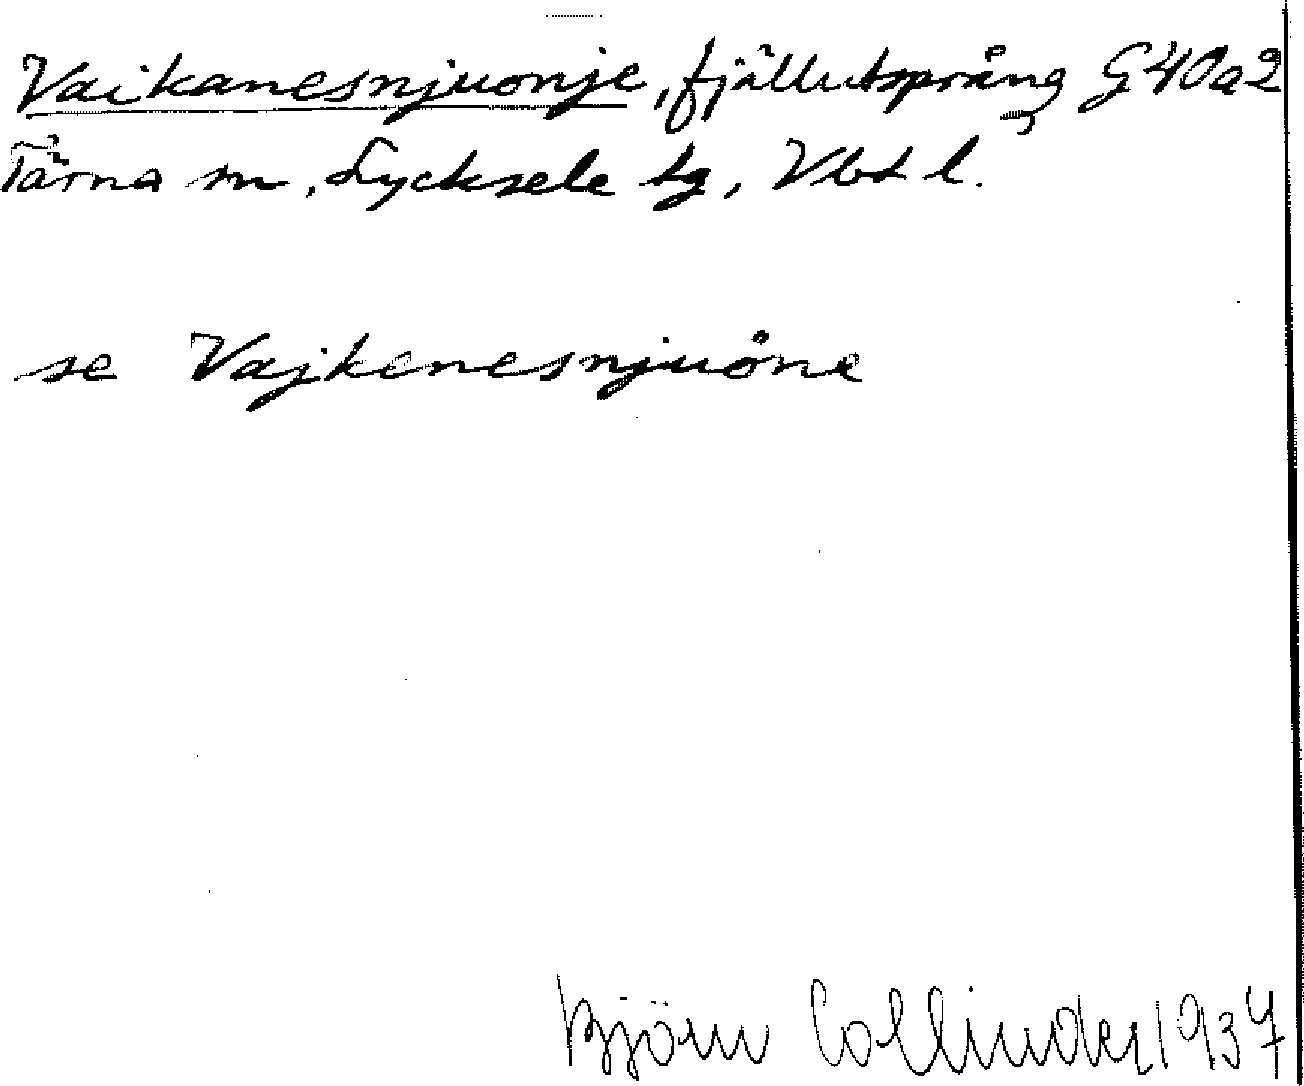 Vaikanesnjuonje, fjällutsprång G 40a2
Tärna sn, Lycksele tg, Vbt l.
se Vajkenesnjuöne
Björn Collinder 1937